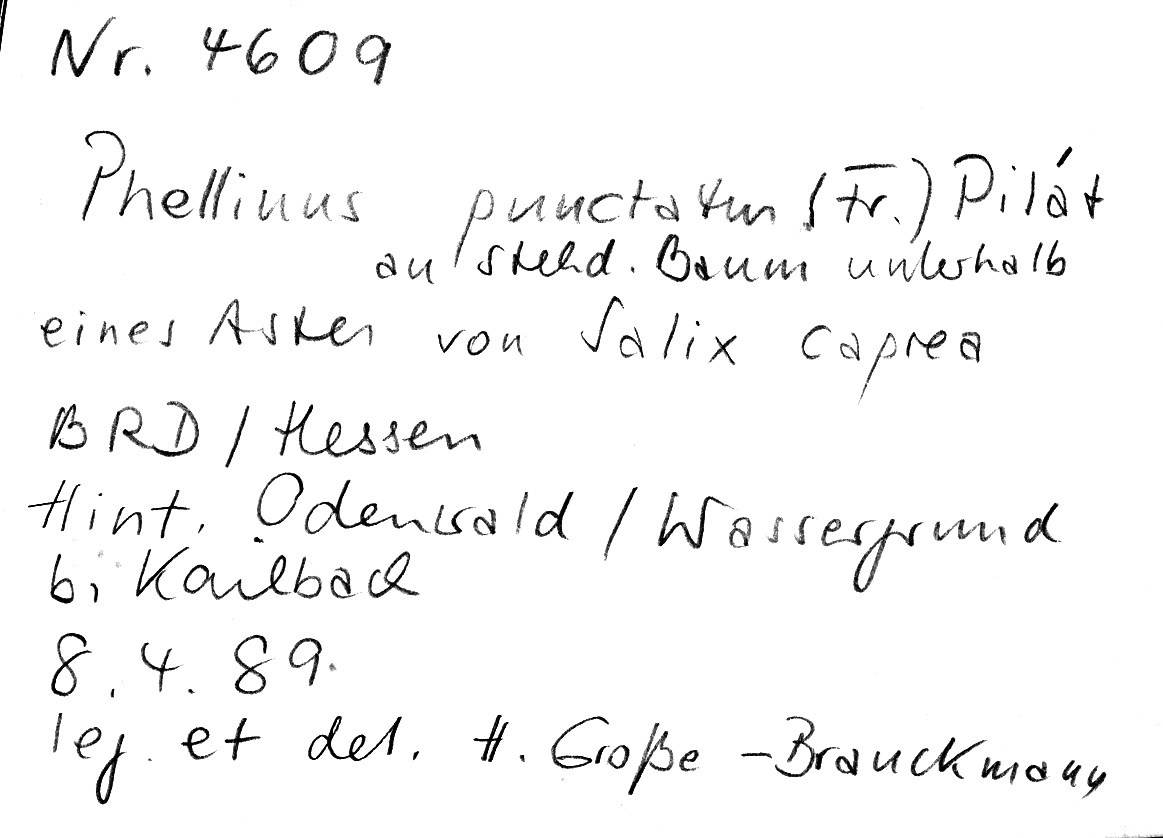 Nr. 4609
Phellinus punctatus (Fr.) Pilát
an stehd. Baum unterhalb
eines Astes von Salix caprea
BRD / Hessen
Hint. Odenwald / Wassergrund
b. Kailbach
8.4.89.
leg. et det. H. Große-Brauckmann